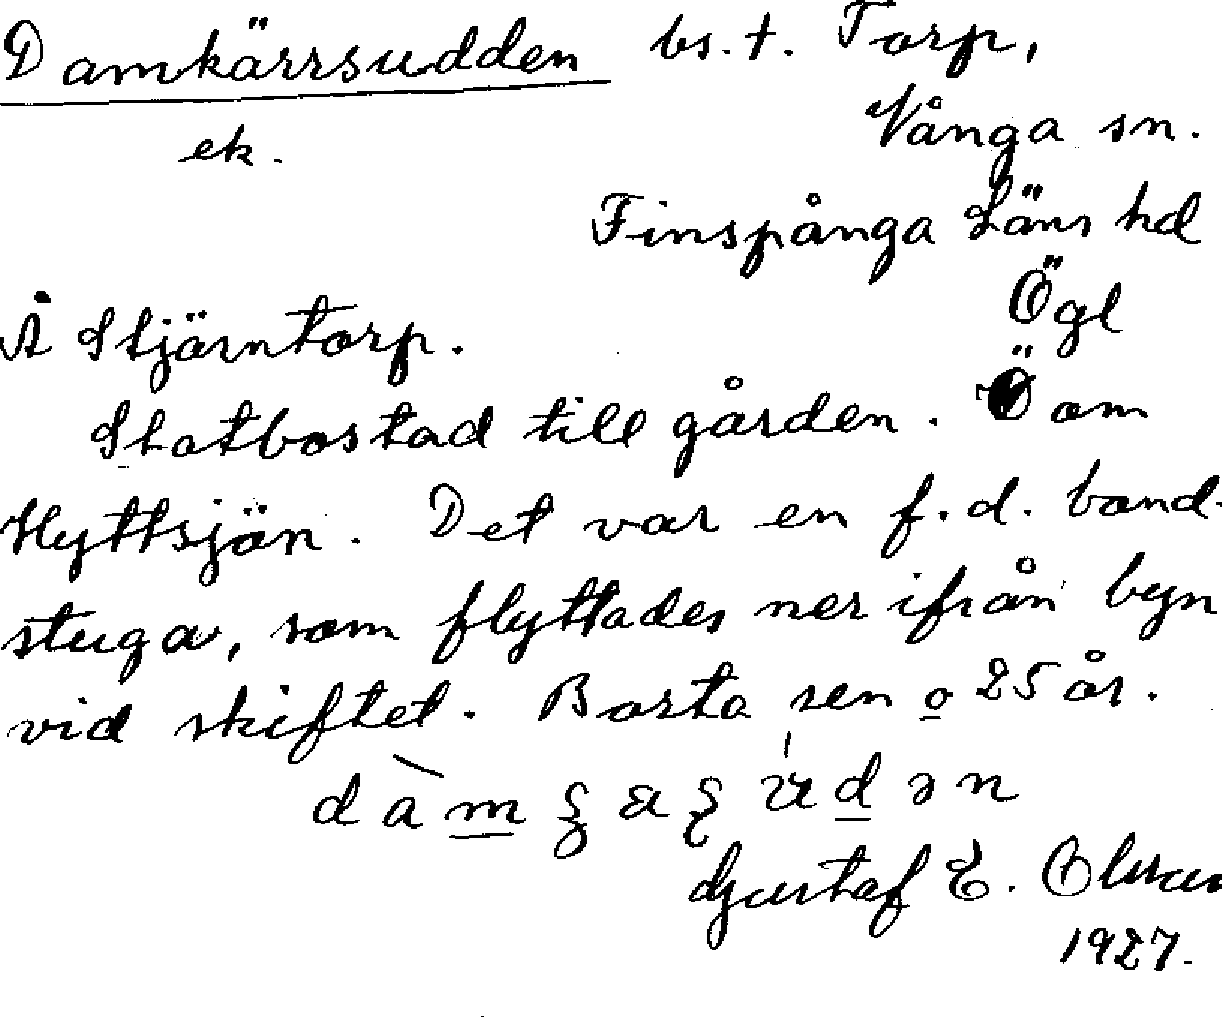 Damkärrsudden bs. t. Torp,
ek. Vånga sn.
Finspånga Läns hd
Ögl
Å Stjärntorp.
Statbostad till gården. Ö om
Hyttsjön. Det var en f. d. bond-
stuga, som flyttades ner ifrån byn
vid skiftet. Borta sen o 25 år.
Gustaf E. Olsson
1927.